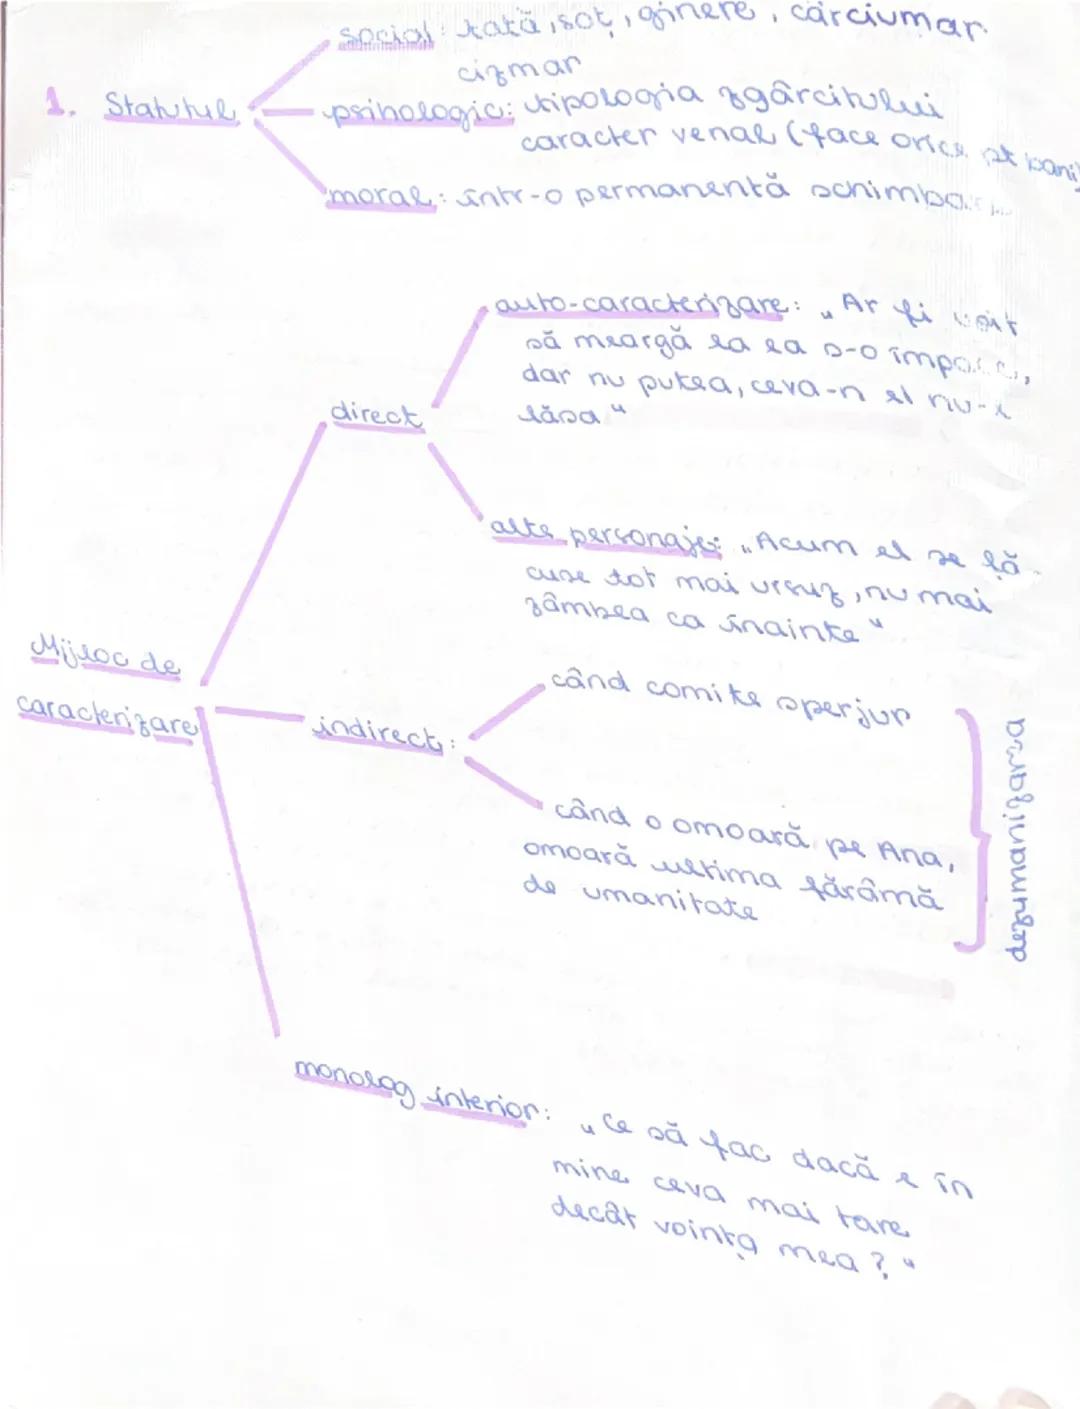 social: tată, soț, ginere, cârciumar
cizmar
1. Statutul
psihologic: tipologia zgârcitului
caracter venal (face orice pt bani)
moral: într-o permanentă
auto-caracterizare: „Ar fi voit
să meargă la ea s-o
dar nu putea, ceva-n el nu-l
lăsa"
direct
alte personaje: „Acum el se fă-
cuse tot mai ursuz, nu mai
zâmbea ca înainte"
Mijloc de
caracterizare
indirect:
când comite sperjur
când o omoară pe Ana,
omoară ultima fărâmă
de umanitate
dezumanizarea
monolog interior: „Ce să fac dacă e în
mine ceva mai tare
decât voința mea?"